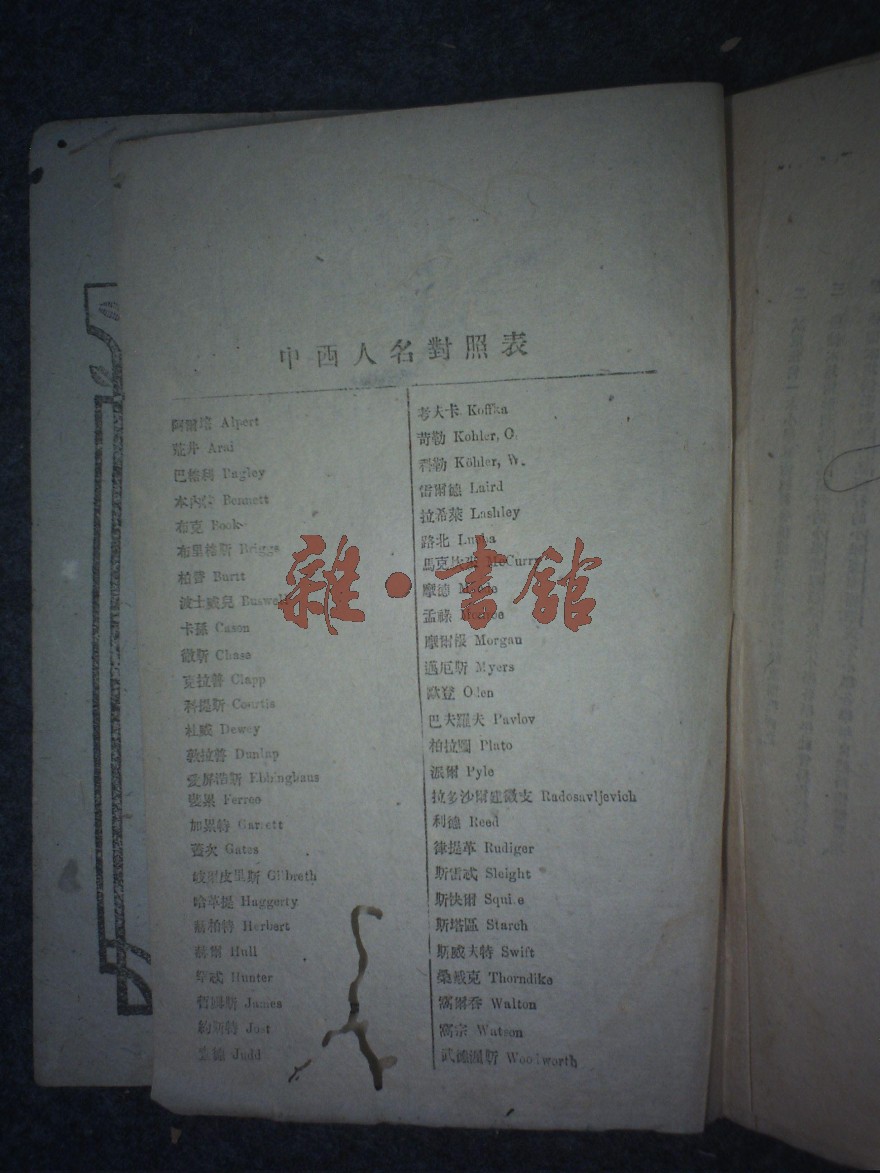 中西人名對照表
阿爾培 Alpert
荒井 Arai
巴格利 Bagley
本內特 Bennett
布克 Book
布里格斯 Briggs
柏替 Burtt
波士威兒 Buswell
卡孫 Cason
徹斯 Chase
克拉普 Clapp
科提斯 Courtis
杜威 Dewey
敦拉普 Dunlap
愛屏浩斯 Ebbinghaus
Ferree
加累特 Garrett
蓋次 Gates
皮里斯 Gilbreth
哈革提 Haggerty
赫柏特 Herbert
赫爾 Hull
Hunter
James
約斯特 Jost
Judd
考夫卡 Koffka
苛勒 Kohler, O.
科勒 Köhler, W.
雷爾德 Laird
拉希萊 Lashley
路北 Lubba
McCurr
摩德
孟祿
摩爾根 Morgan
邁厄斯 Myers
歐登 Oden
巴夫羅夫 Pavlov
柏拉圖 Plato
派爾 Pyle
拉多沙爾維微支 Radosavljevich
利德 Reed
律提革 Rudiger
斯雷忒 Sleight
斯快爾 Squire
斯塔區 Starch
斯威夫特 Swift
桑戴克 Thorndike
窩爾吞 Walton
窩宗 Watson
武德渥斯 Woodworth
雜·書館